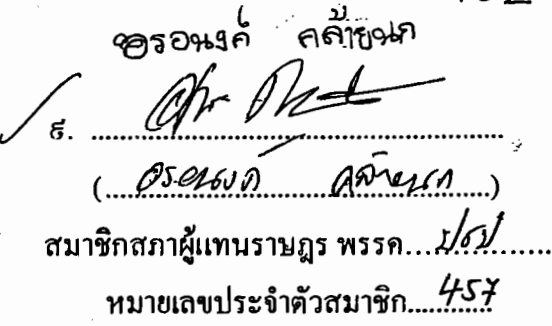 อรอนงค์ คล้ายนก
๕. ....................
(...อรอนงค์ คล้ายนก...)
สมาชิกสภาผู้แทนราษฎร พรรค...ปชป...
หมายเลขประจำตัวสมาชิก....457....